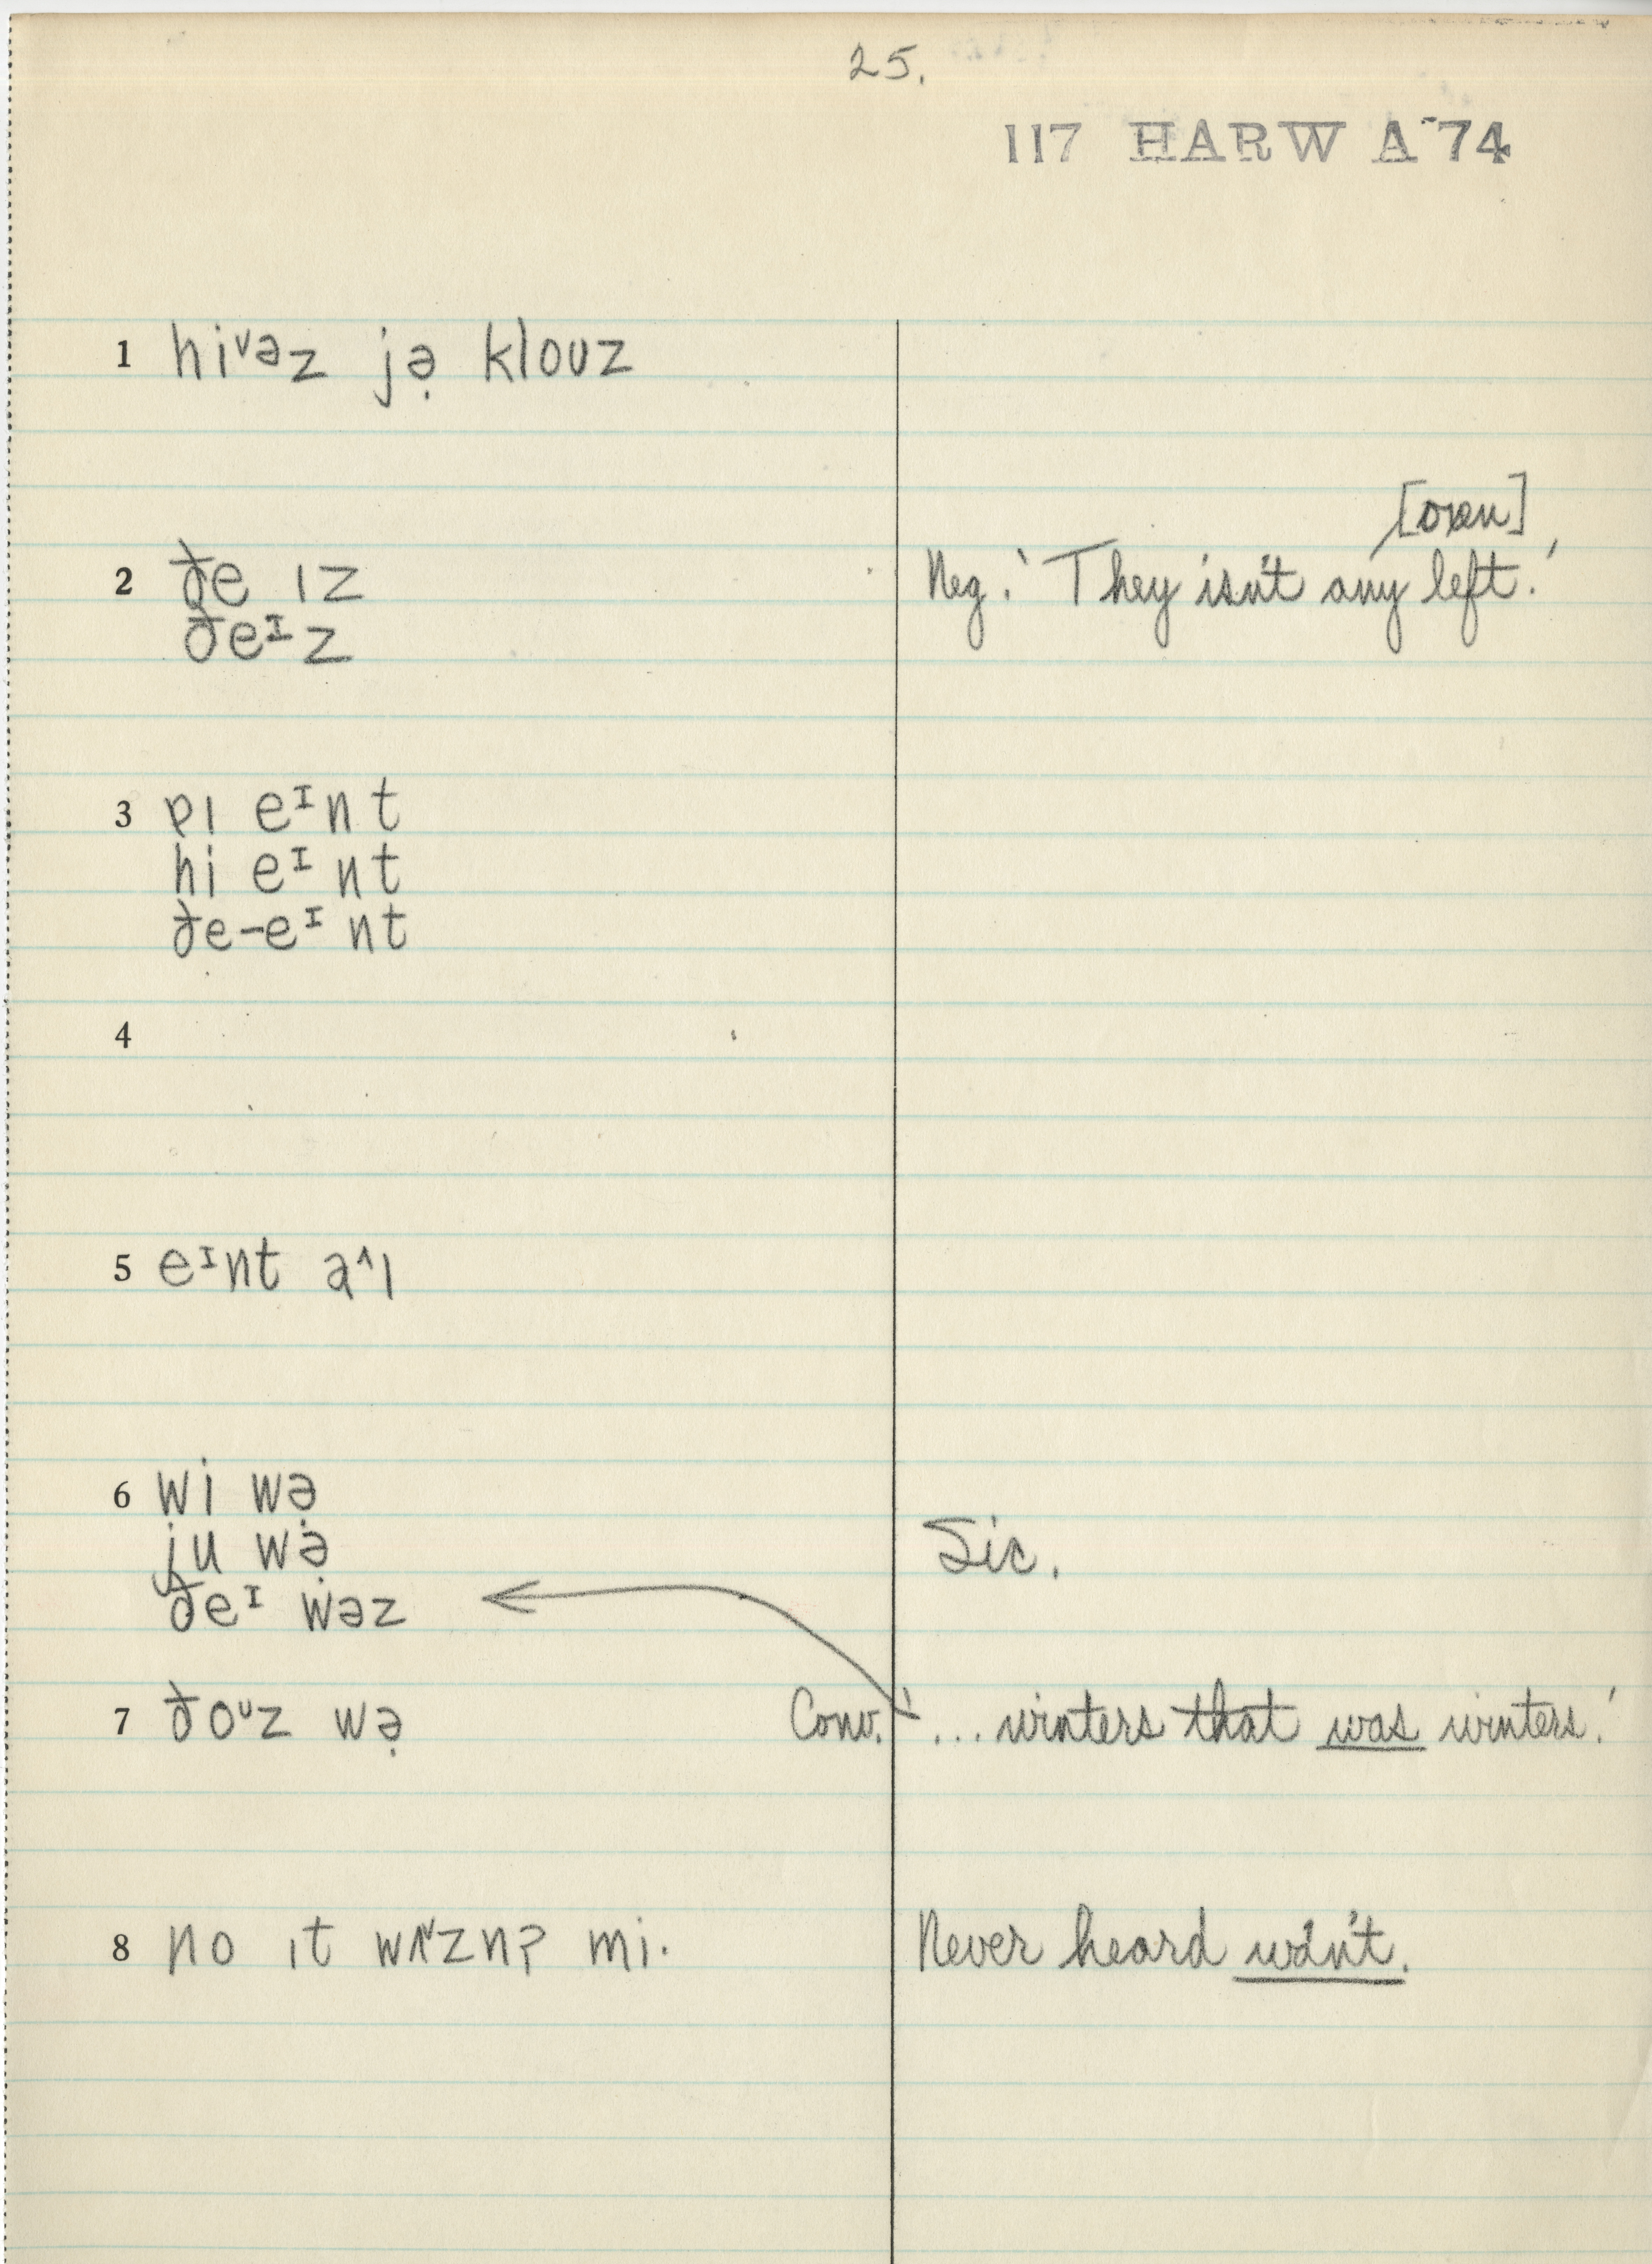 25.
117 HARW A 74
1 hiᵛəz jə̣ klouz
[oxen]
2 ðe ɪz Neg. 'They isn't any left.'
ðeᶦz
3 eᶦnt
hi eᶦnt
ðe-eᶦnt
4
5 eᶦnt a^ɪ
6 wi wə̣
ju wə̣ Sic.
ðeᶦ wəz
7 ðoᶸz wə̣ Conv. '... winters that was winters.'
8 no ɪt wʌ˅znʔ mi. Never heard